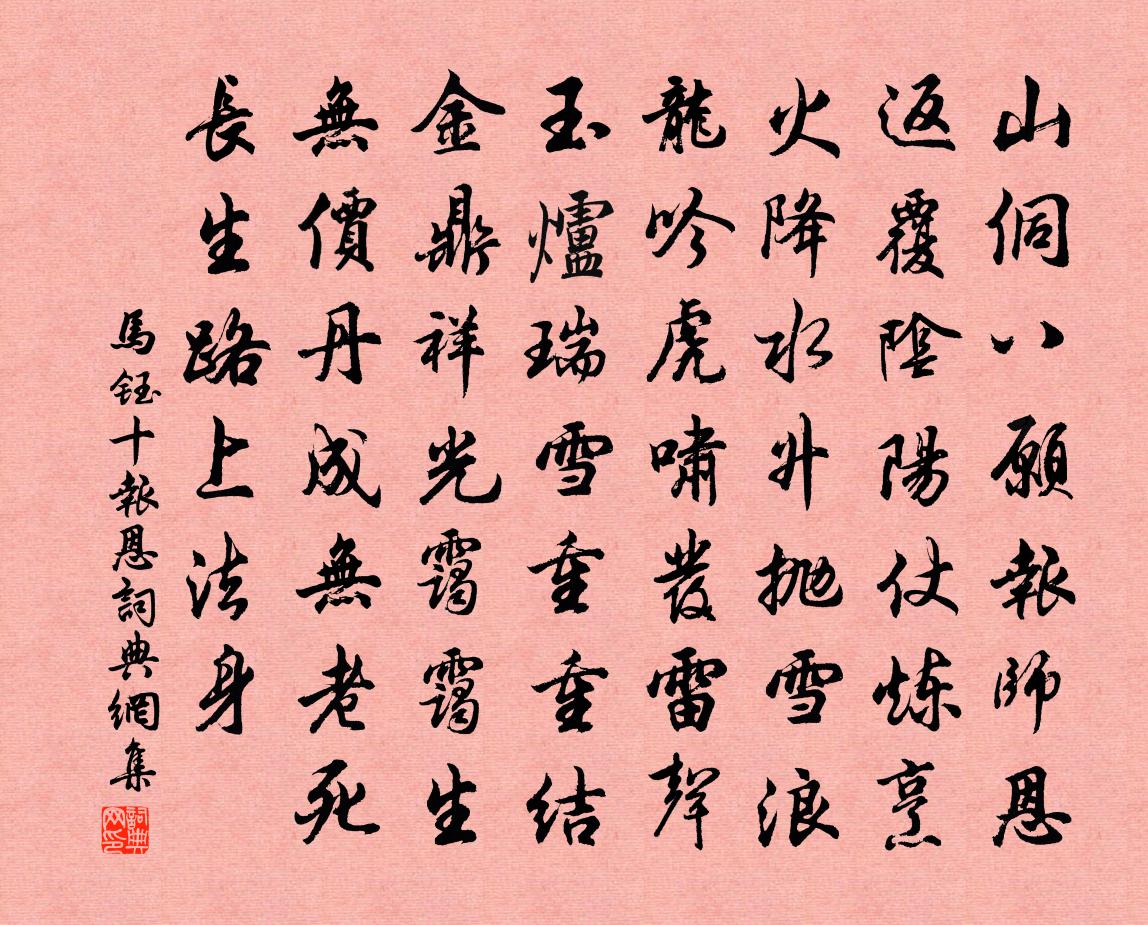 山侗八願報師恩
返覆陰陽仗炼烹
火降水升抛雪浪
龍吟虎嘯發雷聲
玉爐瑞雪重重結
金鼎祥光靄靄生
無價丹成無老死
長生路上法身
馬鈺十報恩詞典網集
詞典网印